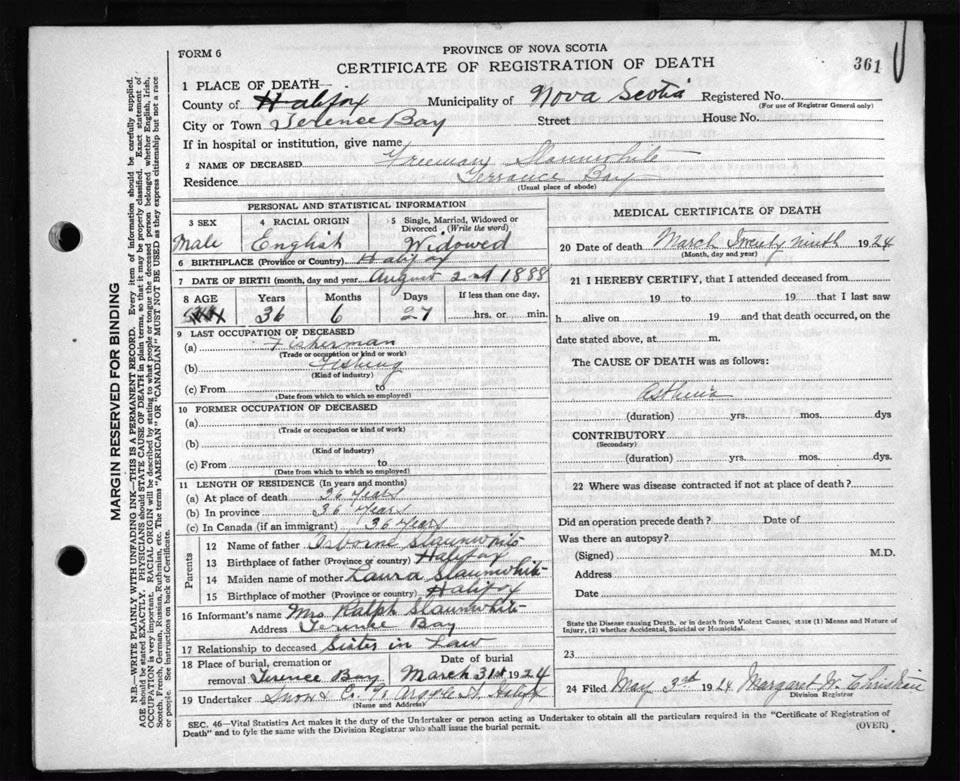 FORM 6
PROVINCE OF NOVA SCOTIA
CERTIFICATE OF REGISTRATION OF DEATH
361
1 PLACE OF DEATH—
County of Halifax Municipality of Nova Scotia Registered No.
(For use of Registrar General only)
City or Town Terence Bay Street House No.
If in hospital or institution, give name
2 NAME OF DECEASED Freeman Slaunwhite
Residence Terrance Bay
(Usual place of abode)
PERSONAL AND STATISTICAL INFORMATION
3 SEX 4 RACIAL ORIGIN 5 Single, Married, Widowed or
Divorced (Write the word)
Male English Widowed
6 BIRTHPLACE (Province or Country) Halifax
7 DATE OF BIRTH (month, day and year August 2nd 1888
8 AGE Years Months Days If less than one day,
36 6 27 hrs. or min.
9 LAST OCCUPATION OF DECEASED
(a) Fisherman
(Trade or occupation or kind or work)
(b) Fishing
(Kind of industry)
(c) From to
(Date from which to which so employed)
10 FORMER OCCUPATION OF DECEASED
(a)
(Trade or occupation or kind of work)
(b)
(Kind of industry)
(c) From to
(Date from which to which so employed)
11 LENGTH OF RESIDENCE (In years and months)
(a) At place of death 36 Years
(b) In province 36 Years
(c) In Canada (if an immigrant) 36 Years
Parents
12 Name of father Osborne Slaunwhite
13 Birthplace of father (Province or country) Halifax
14 Maiden name of mother Laura Slaunwhite
15 Birthplace of mother (Province or country) Halifax
16 Informant's name Mrs Ralph Slaunwhite
Address Terence Bay
17 Relationship to deceased Sister in Law
18 Place of burial, cremation or Date of burial
removal Terence Bay March 31st 1924
19 Undertaker Snow & Co. Argyle St. Halifax
(Name and Address)
MEDICAL CERTIFICATE OF DEATH
20 Date of death March Twenty ninth 1924
(Month, day and year)
21 I HEREBY CERTIFY, that I attended deceased from
19 to 19 that I last saw
h alive on 19 and that death occurred, on the
date stated above, at m.
The CAUSE OF DEATH was as follows:
Asthenia
(duration) yrs. mos. dys
CONTRIBUTORY
(Secondary)
(duration) yrs. mos. dys.
22 Where was disease contracted if not at place of death?
Did an operation precede death? Date of
Was there an autopsy?
(Signed) M.D.
Address
Date
State the Disease causing Death, or in death from Violent Causes, state (1) Means and Nature of
Injury, (2) whether Accidental, Suicidal or Homicidal.
23
24 Filed May 3rd 1924 Margaret W. Christian
Division Registrar
SEC. 46—Vital Statistics Act makes it the duty of the Undertaker or person acting as Undertaker to obtain all the particulars required in the "Certificate of Registration of
Death" and to fyle the same with the Division Registrar who shall issue the burial permit.
(OVER)
MARGIN RESERVED FOR BINDING
N.B.—WRITE PLAINLY, WITH UNFADING INK—THIS IS A PERMANENT RECORD. Every item of information should be carefully supplied.
AGE should be stated EXACTLY. PHYSICIANS should STATE CAUSE OF DEATH in plain terms, so that it may be properly classified. Exact statement of
OCCUPATION is very important. RACIAL ORIGIN will be described by stating to what people or tongue the deceased person belonged whether English, Irish,
Scotch, French, German, Russian, Ruthenian, etc. The terms "AMERICAN" OR "CANADIAN" MUST NOT BE USED as they express citizenship but not a race
or people. See instructions on back of Certificate.